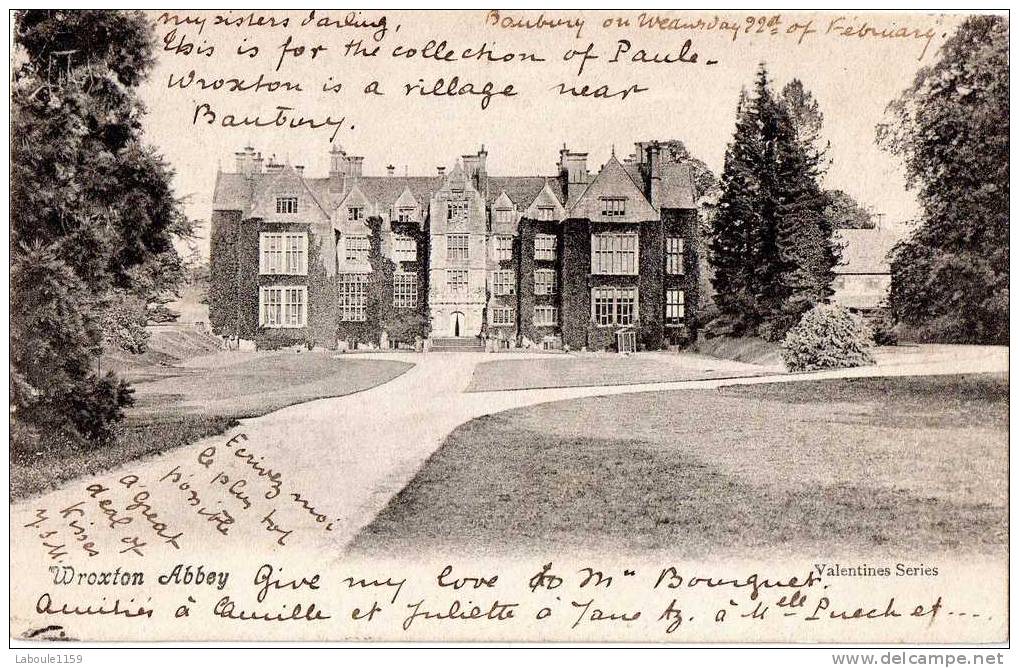 my sisters darling,
Banbury on Wednesday 22d of February.
This is for the collection of Paule.
Wroxton is a village near
Banbury.
Ecrivez moi
le plus tot
possible
a great
deal of
Kisses
Wroxton Abbey
Valentines Series
Give my love to Mn Bourguet.
Amitiés à Camille et Juliette à Jane Az. à Melle Puech et ....
Laboule1159
www.delcampe.net